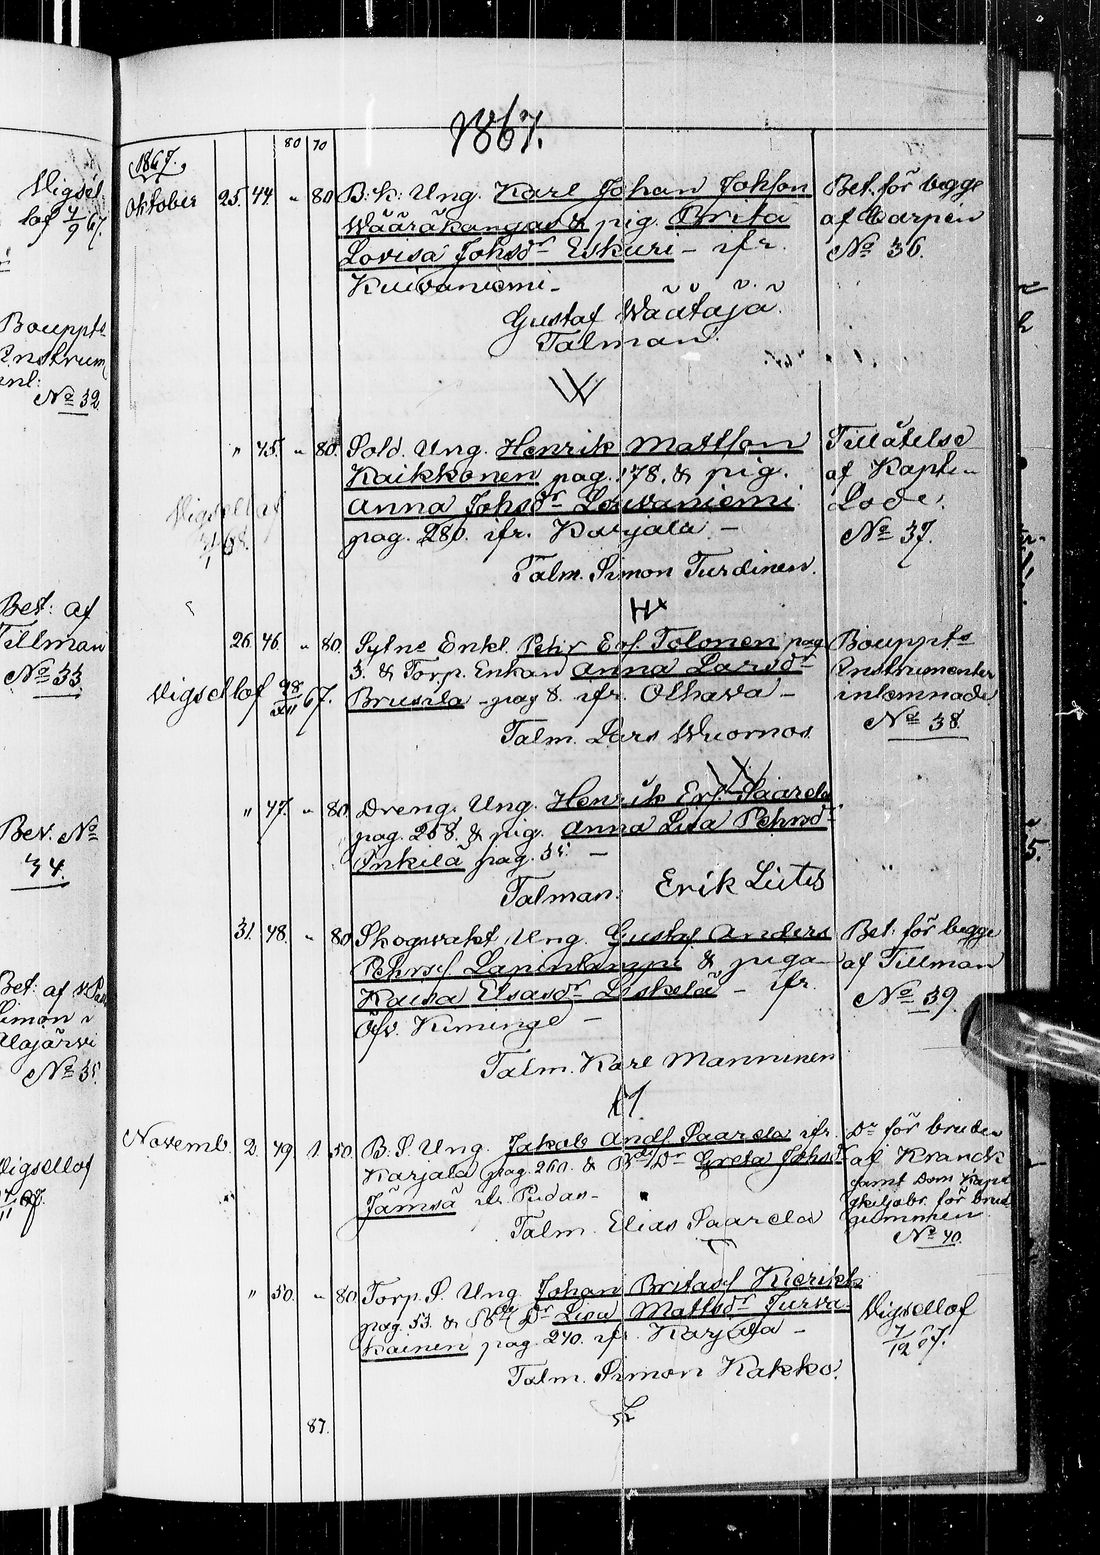 1867.
80 70
1867.
Oktober 25. 44. " 80 B. K. Ung. Karl Johan Johsson
Wääräkangas & pig. Brita
Lovisa Johsdr Eskuri - ifr.
Kuivaniemi -
Gustaf Wäätäjä.
Talman.
Bet. för begge
af Carpen
No 36.
" 45. " 80. Sold. Ung. Henrik Mattsson
Kaikkonen pag. 178. & pig.
Anna Johsdr
pag. 280. ifr. Karjala -
Talm. Simon Turdinen.
Tillåtelse
af Kapten
Lode.
No 37.
Vigsellof
26. 46. " 80. Sytne Enkl. Pehr Erss. Tolonen pag
3. & Torp. Enkan Anna Larsdr
Brusila - pag 8. ifr. Olhava -
Talm. Lars Wuornos
Vigsellof 28/XII 67.
Bouppts
Instrumenter
inlemnade
No 38.
" 47. " 80. Dreng. Ung. Henrik Erss. Saarela
pag. 258. & pig. Anna Lisa Pehrsdr
Inkilä pag. 35. -
Talman: Erik Liites
31. 48. " 80 Skogsvakt Ung. Gustaf Anders
Pehrss. & piga
Kaisa Elsasdr Leskelä - ifr.
Öfv. Kiminge -
Talm. Karl Manninen
Bet. för begge
af Tillman
No 39.
Novemb. 2. 49. 1. 50. B. S. Ung. Jakob Andss. Saarela ifr.
Karjala pag. 260. & Bds Dr Greta Johsdr
Jämsä ifr. Pudas -
Talm. Elias Saarela
Dr för bruden
af Krank
samt Dom Kap
för brud
gummen
No 40.
" 50. " 80. Torp. S. Ung. Johan Britass. Kierikk
pag. 53. & Dr Lisa Mattsdr Turva
kainen pag. 270. ifr. Karjala -
Talm. Simon Kakko.
Vigsellof
7/12 67.
87.
Vigsel
lof 4/9 67.
Bouppts
Instrum
No 32
Bet. af
Tillman
No 33
Bev. No
34.
Bet. af
Simon
Alajärvi
No 35.
Vigsellof